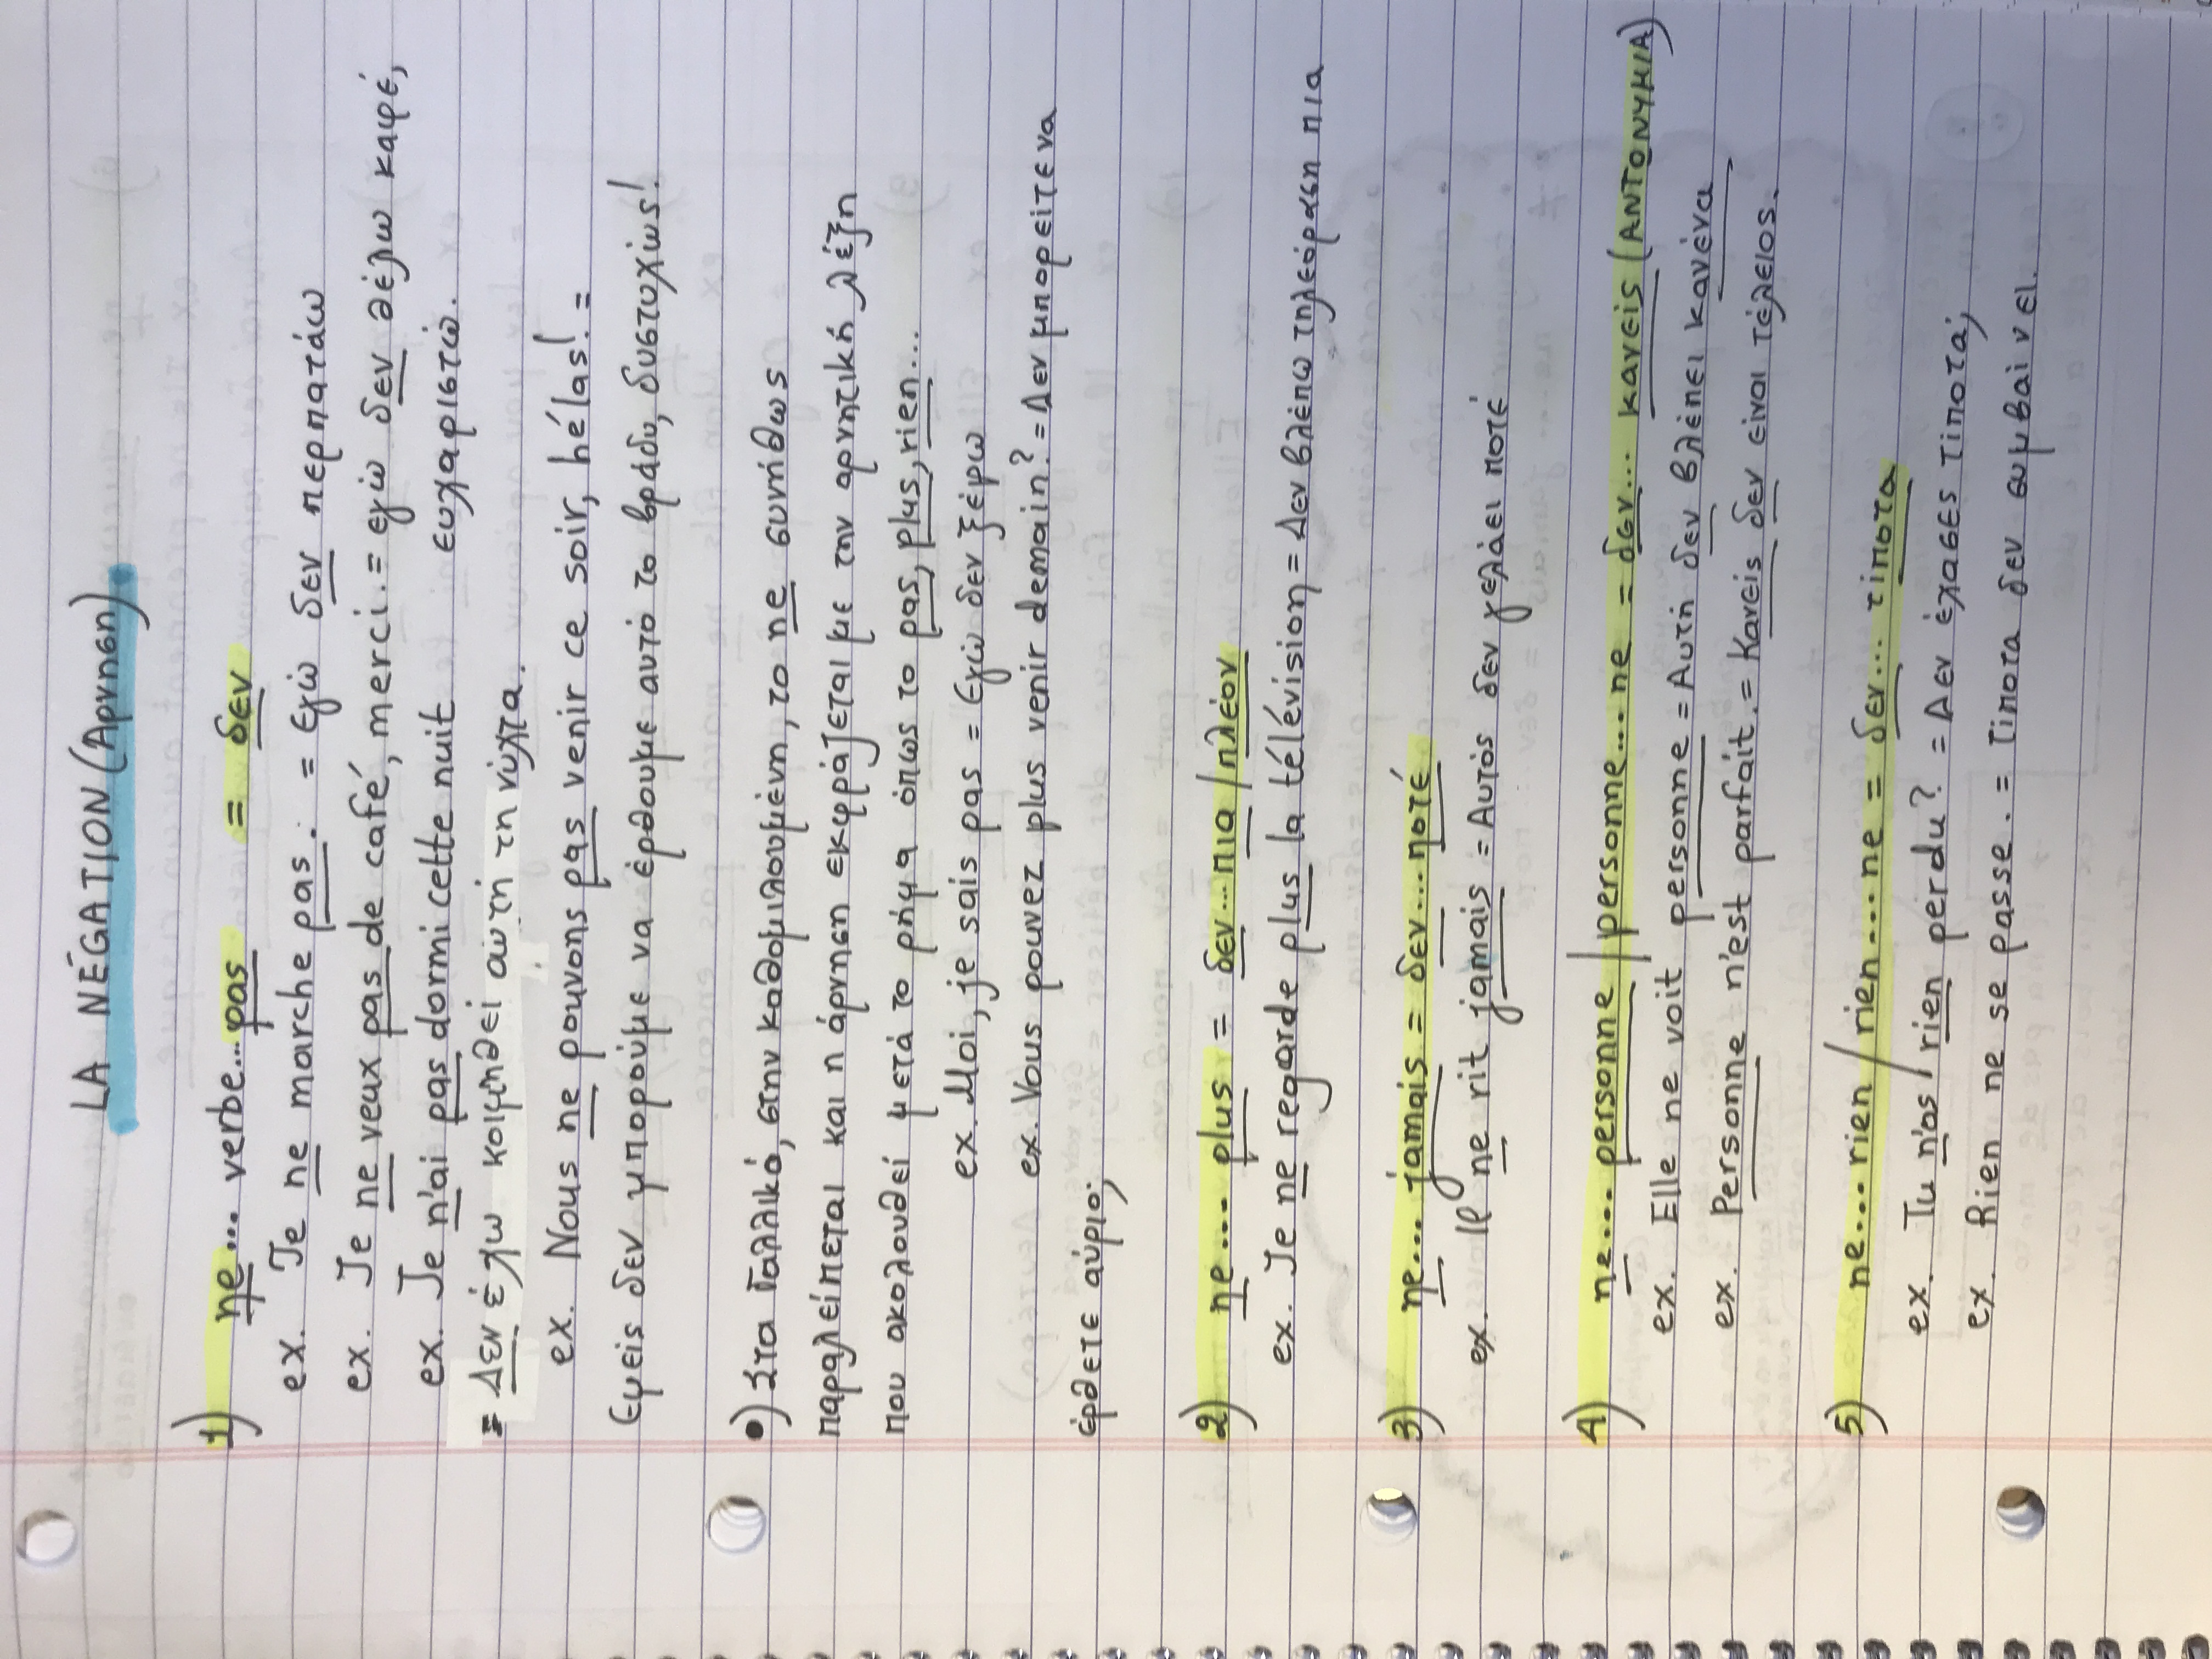 LA NÉGATION (Αρνηση)
1) ne... verbe... pas = δεν
ex. Je ne marche pas. = εγώ δεν περπατάω
ex. Je ne veux pas de café, merci. = εγώ δεν θέλω καφέ,
ex. Je n'ai pas dormi cette nuit ευχαριστώ.
= Δεν έχω κοιμηθεί αυτή τη νύχτα.
ex. Nous ne pouvons pas venir ce soir, hélas! =
Εμείς δεν μπορούμε να έρθουμε αυτό το βράδυ, δυστυχώς!
•) Στα Γαλλικά, στην καθομιλουμένη, το ne συνήθως
παραλείπεται και η άρνηση εκφράζεται με την αρνητική λέξη
που ακολουθεί μετά το ρήμα όπως το pas, plus, rien...
ex. Moi, je sais pas = Εγώ δεν ξέρω
ex. Vous pouvez plus venir demain? = Δεν μπορείτε να
έρθετε αύριο;
2) ne.... plus = δεν... πια / πλέον
ex. Je ne regarde plus la télévision = Δεν βλέπω τηλεόραση πια
3) ne... jamais = δεν... ποτέ
ex. Il ne rit jamais = Αυτός δεν γελάει ποτέ
4) ne.... personne / personne.... ne = δεν... κανείς (ΑΝΤΟΝΥΜΙΑ)
ex. Elle ne voit personne = Αυτή δεν βλέπει κανένα
ex. Personne n'est parfait. = Κανείς δεν είναι τέλειος.
5) ne.... rien / rien.... ne = δεν... τίποτα
ex. Tu n'as rien perdu? = Δεν έχασες τίποτα;
ex. Rien ne se passe. = Τίποτα δεν συμβαίνει.